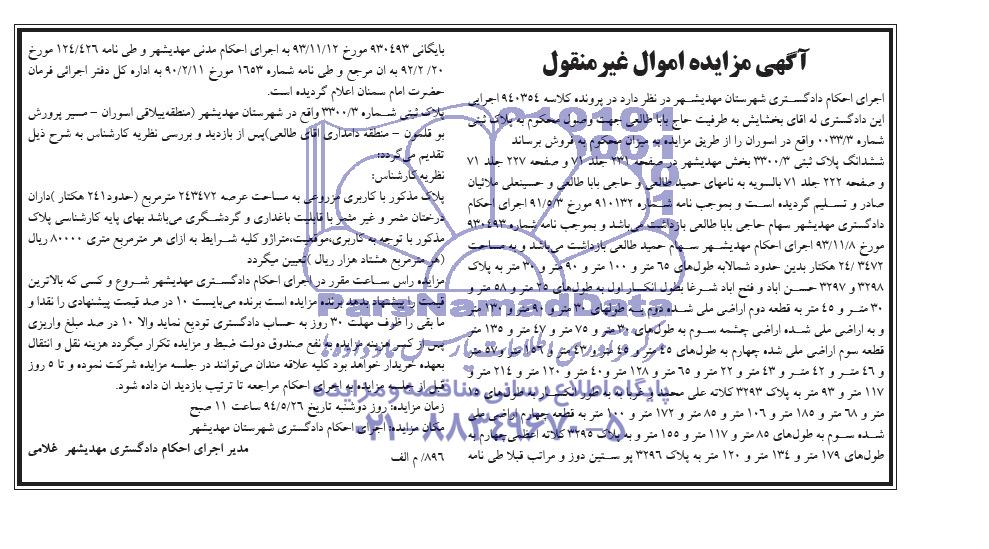 آگهی مزایده اموال غیر منقول
اجرای احکام دادگستری شهرستان مهدیشهر در نظر دارد در پرونده کلاسه ۹۴۰۳۵۴ اجرایی
این دادگستری له اقای بخشایش به طرفیت حاج بابا طالعی جهت وصول محکوم به پلاک ثبتی
شماره ۰۰۳۳/۳ واقع در اسوران را از طریق مزایده به میزان محکوم به فروش برساند
ششدانگ پلاک ثبتی ۳۳۰۰/۳ بخش مهدیشهر در صفحه ۲۳۱ جلد ۷۱ و صفحه ۲۲۷ جلد ۷۱
و صفحه ۲۲۲ جلد ۷۱ بالسویه به نامهای حمید طالعی و حاجی بابا طالعی و حسینعلی ملائیان
صادر و تسلیم گردیده است و بموجب نامه شماره ۹۱۰۱۳۲ مورخ ۹۱/۵/۳ اجرای احکام
دادگستری مهدیشهر سهام حاجی بابا طالعی بازداشت می‌باشد و بموجب نامه شماره ۹۳۰۴۹۳
مورخ ۹۳/۱۱/۸ اجرای احکام مهدیشهر سهام حمید طالعی بازداشت می‌باشد و به مساحت
۳۴۷۲ /۲۴ هکتار بدین حدود شمالابه طول‌های ۶۵ متر و ۱۰۰ متر و ۹۰ متر و ۳۰ متر به پلاک
۳۲۹۸ و ۳۲۹۷ حسن اباد و فتح اباد شرغا بطول انکسار اول به طول‌های ۲۵ متر و ۵۸ متر و
۳۰ متر و ۴۵ متر به قطعه دوم اراضی ملی شده دوم به طولهای ۳۰ متر و ۹۰ متر و ۱۳۰ متر
و به اراضی ملی شده اراضی چشمه سوم به طول‌های ۳۰ متر و ۷۵ متر و ۴۷ متر و ۱۳۵ متر
قطعه سوم اراضی ملی شده چهارم به طول‌های ۴۵ متر و ۴۵ متر و ۴۳ متر و ۱۵۶ متر و ۵۷ متر
و ۴۶ متر و ۴۲ متر و ۴۳ متر و ۲۲ متر و ۶۵ متر و ۱۲۸ متر و ۴۰ متر و ۱۲۰ متر و ۲۱۴ متر و
۱۱۷ متر و ۹۳ متر به پلاک ۳۲۹۳ کلاته علی محمد و غربا به به طور انکسار به طول‌های ۱۵
متر و ۶۸ متر و ۱۸۵ متر و ۱۰۶ متر و ۸۵ متر و ۱۷۲ متر و ۱۰۰ متر به قطعه چهارم اراضی ملی
شده سوم به طول‌های ۸۵ متر و ۱۱۷ متر و ۱۵۵ متر و به پلاک ۳۲۹۵ کلاته اعظمی چهارم به
طول‌های ۱۷۹ متر و ۱۳۴ متر و ۱۲۰ متر به پلاک ۳۲۹۶ پو ستین دوز و مراتب قبلا طی نامه
بایگانی ۹۳۰۴۹۳ مورخ ۹۳/۱۱/۱۲ به اجرای احکام مدنی مهدیشهر و طی نامه ۱۲۴/۴۲۶ مورخ
۲۰/ ۹۲/۲ به ان مرجع و طی نامه شماره ۱۶۵۳ مورخ ۹۰/۲/۱۱ به اداره کل دفتر اجرائی فرمان
حضرت امام سمنان اعلام گردیده است.
پلاک ثبتی شماره ۳۳۰۰/۳ واقع در شهرستان مهدیشهر (منطقه‌ییلاقی اسوران – مسیر پرورش
بو قلمون – منطقه دامداری اقای طالعی)پس از بازدید و بررسی نظریه کارشناس به شرح ذیل
تقدیم می‌گردد:
نظریه کارشناس:
پلاک مذکور با کاربری مزروعی به مساحت عرصه ۲۴۳۴۷۲ مترمربع (حدود۲۴۱ هکتار )داران
درختان مثمر و غیر مثمر با قابلیت باغداری و گردشگری می‌باشد بهای پایه کارشناسی پلاک
مذکور با توجه به کاربری،موقعیت،متراژو کلیه شرایط به ازای هر مترمربع متری ۸۰۰۰۰ ریال
(هر مترمربع هشتاد هزار ریال )تعیین میگردد
مزایده راس ساعت مقرر در اجرای احکام دادگستری مهدیشهر شروع و کسی که بالاترین
قیمت را پیشنهاد بدهد برنده مزایده است برنده می‌بایست ۱۰ در صد قیمت پیشنهادی را نقدا و
ما بقی را ظرف مهلت ۳۰ روز به حساب دادگستری تودیع نماید والا ۱۰ در صد مبلغ واریزی
پس از کسر هزینه مزایده به نفع صندوق دولت ضبط و مزایده تکرار میگردد هزینه نقل و انتقال
بعهده خریدار خواهد بود کلیه علاقه مندان می‌توانند در جلسه مزایده شرکت نموده و تا ۵ روز
قبل از جلسه مزایده به اجرای احکام مراجعه تا ترتیب بازدید ان داده شود.
زمان مزایده: روز دوشنبه تاریخ ۹۴/۵/۲۶ ساعت ۱۱ صبح
مکان مزایده: اجرای احکام دادگستری شهرستان مهدیشهر
مدیر اجرای احکام دادگستری مهدیشهر غلامی
۸۹۶/ م الف
ParsNamadData
پایگاه اطلاع رسانی مناقصه و مزایده
۰۲۱-۸۸۳۴۹۶۷۰-۵